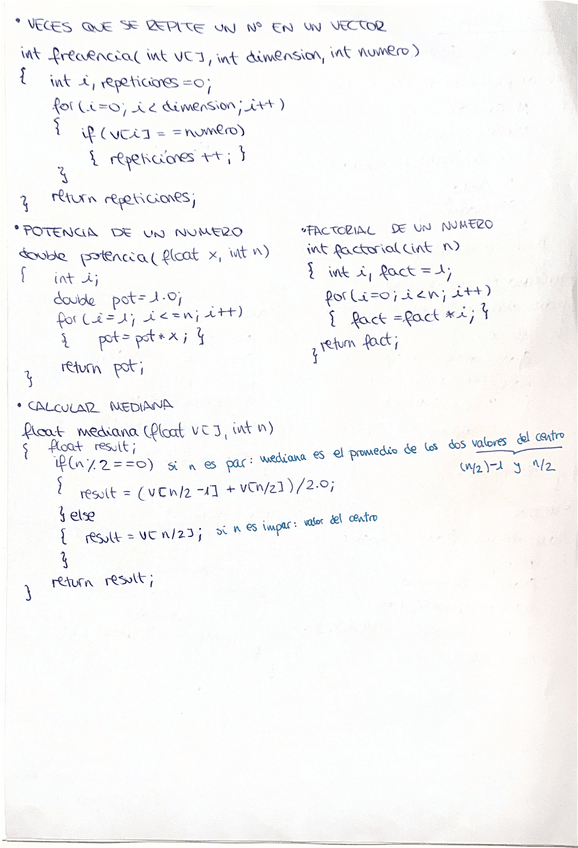 • VECES QUE SE REPITE UN Nº EN UN VECTOR
int frecuencia( int V[], int dimension, int numero)
{ int i, repeticiones=0;
for(i=0; i<dimension; i++)
{ if(V[i]==numero)
{ repeticiones ++; }
}
return repeticiones;
}
• POTENCIA DE UN NUMERO
double potencia( float x, int n)
{ int i;
double pot=1.0;
for(i=1; i<=n; i++)
{ pot=pot*x; }
return pot;
}
• FACTORIAL DE UN NUMERO
int factorial(int n)
{ int i, fact = 1;
for(i=0; i<n; i++)
{ fact = fact * i; }
return fact;
}
• CALCULAR MEDIANA
float mediana (float V[], int n)
{ float result;
if(n%2==0) si n es par: mediana es el promedio de los dos valores del centro
(n/2)-1 y n/2
{ result = (V[n/2 -1] + V[n/2])/2.0;
} else
{ result = V[n/2]; si n es impar: valor del centro
}
return result;
}